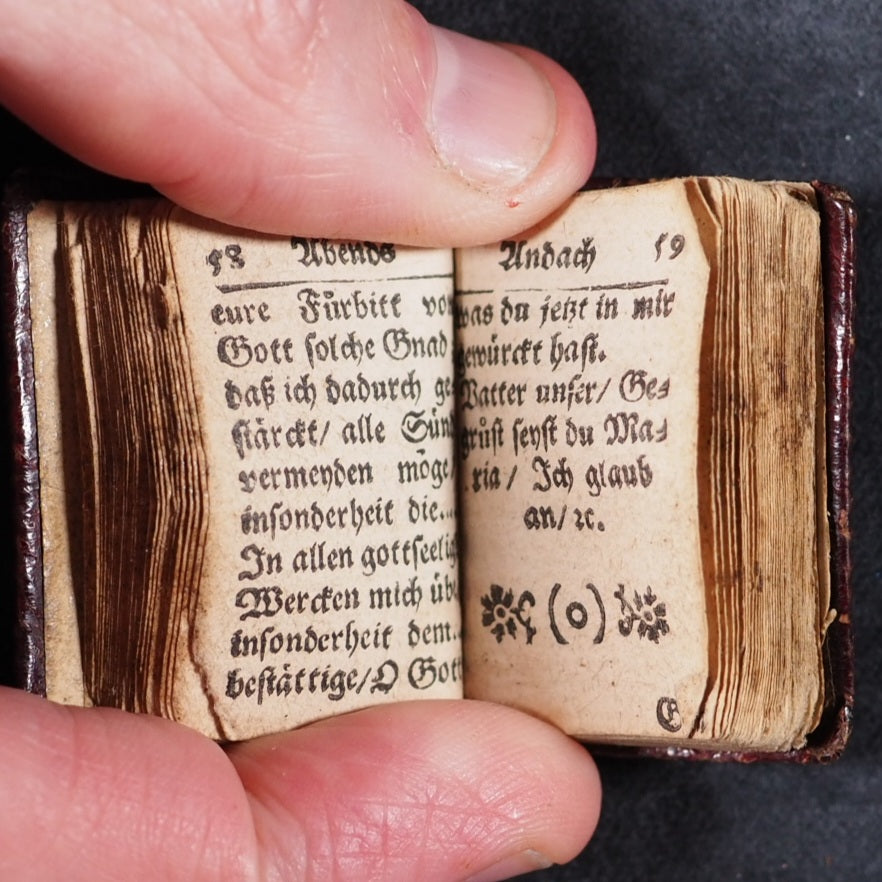 58 Abends
eure Fürbitt von
Gott solche Gnad
daß ich dadurch ge⸗
stärckt/ alle Sünd
vermeyden möge/
insonderheit die...
In allen gottseelig
Wercken mich übe
insonderheit dem...
bestättige/O Gott
Andach 59
was du jetzt in mir
gewürckt hast.
Vatter unser/ Ge⸗
grüst seyst du Ma⸗
ria/ Ich glaub
an/ ꝛc.
(o)
E